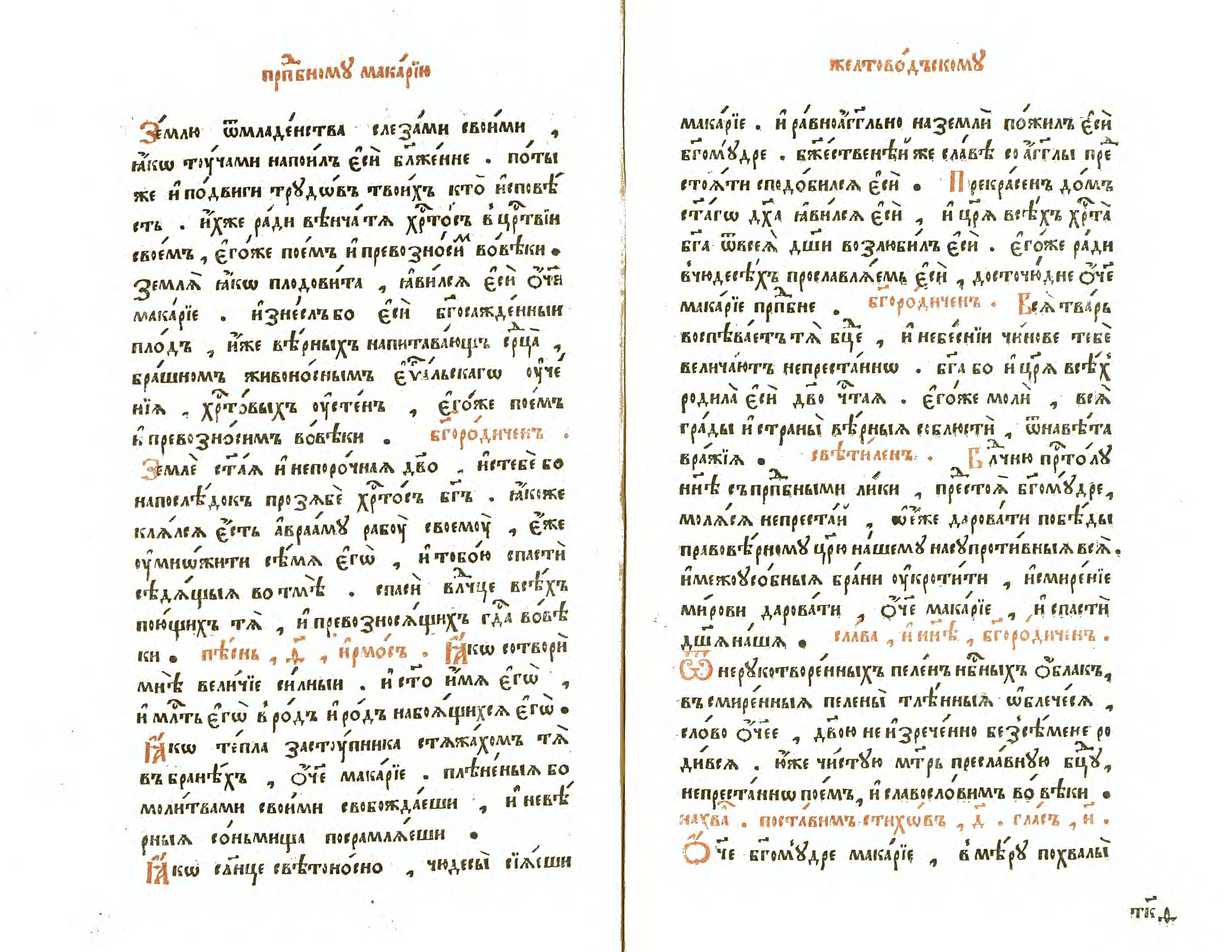 прпⷣбномꙋ мака́рїю
Зе́млю ѿмладе́нства слеза́ми свои́ми ,
ꙗ́кѡ тоу́чами напои́лъ є҆сѝ бл҃же́нне . по́ты
же и҆ по́двиги трꙋдѡ́въ твои́хъ кто̀ и҆сповѣ́
сть . и҆́хже ради вѣнча́ тѧ хрⷭ҇то́съ в цр҃твїи
свое́мъ , є҆го́же пое́мъ и҆ превозно́симⷨ во́вѣки .
Землѧ̀ ꙗ҆́кѡ плодови́та , ꙗ҆ви́лсѧ є҆сѝ ѻ҆́ч҃е
мака́рїе . и҆зне́слъ бо є҆сѝ бг҃осажде́нныи
пло́дъ , и҆́же вѣ́рныхъ напитава́ющъ ср҃ца̀ ,
бра́шномъ живоно́снымъ є҆ѵⷢ҇льскагѡ оу҆че
нїѧ , хрⷭ҇то́выхъ оу҆сте́нъ , є҆го́же пое́мъ
и҆ превозно́симъ во́вѣки . бг҃оро́диченъ .
Землѐ ст҃а́ѧ и҆ непоро́чнаѧ дв҃о , и҆стебе́ бо
напослѣ́докъ прозѧбѐ хрⷭ҇то́съ бг҃ъ . ꙗ҆́коже
клѧ́лсѧ є҆́сть а҆враа́мꙋ рабоу̀ своемоу̀ , є҆́же
оу҆мно́жити сѣ́мѧ є҆гѡ̀ , и҆ тобо́ю спастѝ
сѣдѧ́щыѧ во тмѣ̀ . спасѝ влⷣчце всѣ́хъ
пою́щихъ тѧ̀ , и҆ превозносѧ́щихъ гдⷭ҇а во́вѣ
ки . пѣ́снь , д҃ , і҆рмо́съ . Ꙗ҆́кѡ сотворѝ
мнѣ̀ вели́чїе си́лныи . и҆ ст҃о и҆́мѧ є҆гѡ̀ ,
и҆ млⷭ҇ть є҆гѡ̀ в ро́дъ и҆ ро́дъ на боѧ́щихсѧ є҆гѡ̀ .
Ꙗ҆́кѡ те́пла застоу́пника стѧжа́хомъ тѧ̀
въ бра́нехъ , ѻ҆́ч҃е мака́рїе . плѣне́ныѧ бо
моли́твами свои́ми свобожда́еши , и҆ невѣ́
рныѧ со́ньмища посрамлѧ́еши .
Ꙗ҆́кѡ сл҃нце свѣтоно́сно , чюдесы̀ сїѧ́еши
желтово́дьскомꙋ
мака́рїе . и҆ ра́вноа҆́гг҃льно на землѝ по́жилъ є҆сѝ
бг҃омꙋ́дре . бж҃е́ственѣй же сла́вѣ со а҆́гг҃лы пре
стоѧ́ти сподо́билсѧ є҆сѝ . Прекра́сенъ до́мъ
ст҃а́гѡ дх҃а ꙗ҆ви́лсѧ є҆сѝ , и҆ цр҃ѧ всѣ́хъ хрⷭ҇та̀
бг҃а ѿ всеѧ̀ дш҃и возлюби́лъ є҆сѝ . є҆го́же ради
в чюдесѣ́хъ прославлѧ́емь є҆сѝ , досточю́дне ѻ҆́ч҃е
мака́рїе прпⷣбне . бг҃оро́диченъ . Всѧ̀ тва́рь
воспѣва́етъ тѧ̀ бц҃е , и҆ небе́снїи чи́нове тебѐ
велича́ютъ непреста́ннѡ . бг҃а бо и҆ цр҃ѧ всѣ́хⷯ
родила̀ є҆сѝ дв҃о чⷭ҇таѧ . є҆го́же молѝ , всѧ̀
гра́ды и҆ страны̀ вѣ́рныѧ соблюстѝ , ѿ навѣ́та
вра́жїѧ . свѣти́ленъ . Влⷣчню прⷭ҇то́лꙋ
нн҃ѣ съ прпⷣбными ли́ки , престоѧ̀ бг҃омꙋ́дре,
молѧ́сѧ непреста́й , ѡ҆ е҆́же дарова́ти побѣ́ды
правовѣ́рномꙋ цр҃ю на́шемꙋ на сꙋпроти́вныѧ всѧ̀.
и҆ межоусо́бныѧ бра́ни оу҆кроти́ти , и҆ смире́нїе
ми́рови дарова́ти , ѻ҆́ч҃е мака́рїе , и҆ спастѝ
дш҃ѧ на́шѧ . сла́ва , и҆ нн҃ѣ , бг҃оро́диченъ .
Ѿ нерꙋкотворе́нныхъ пеле́нъ нбⷭ҇ныхъ ѻ҆́блакъ,
въ смире́нныѧ пелены̀ тлѣ́нныѧ ѡ҆блече́сѧ ,
сло́во ѻ҆́ч҃ее , дв҃ою не и҆зрече́нно без̾сѣ́мене ро
ди́всѧ . ю҆́же чи́стꙋю мт҃рь пресла́внꙋю бц҃ꙋ,
непреста́ннѡ пое́мъ, и҆ славосло́вимъ во́ вѣки .
на хва . поста́вимъ стихѡ́въ , д҃ . гла́съ , и҃ .
Ѻ҆́ч҃е бг҃омꙋ́дре мака́рїе , в мѣ́рꙋ похвалы̀
тк҃д